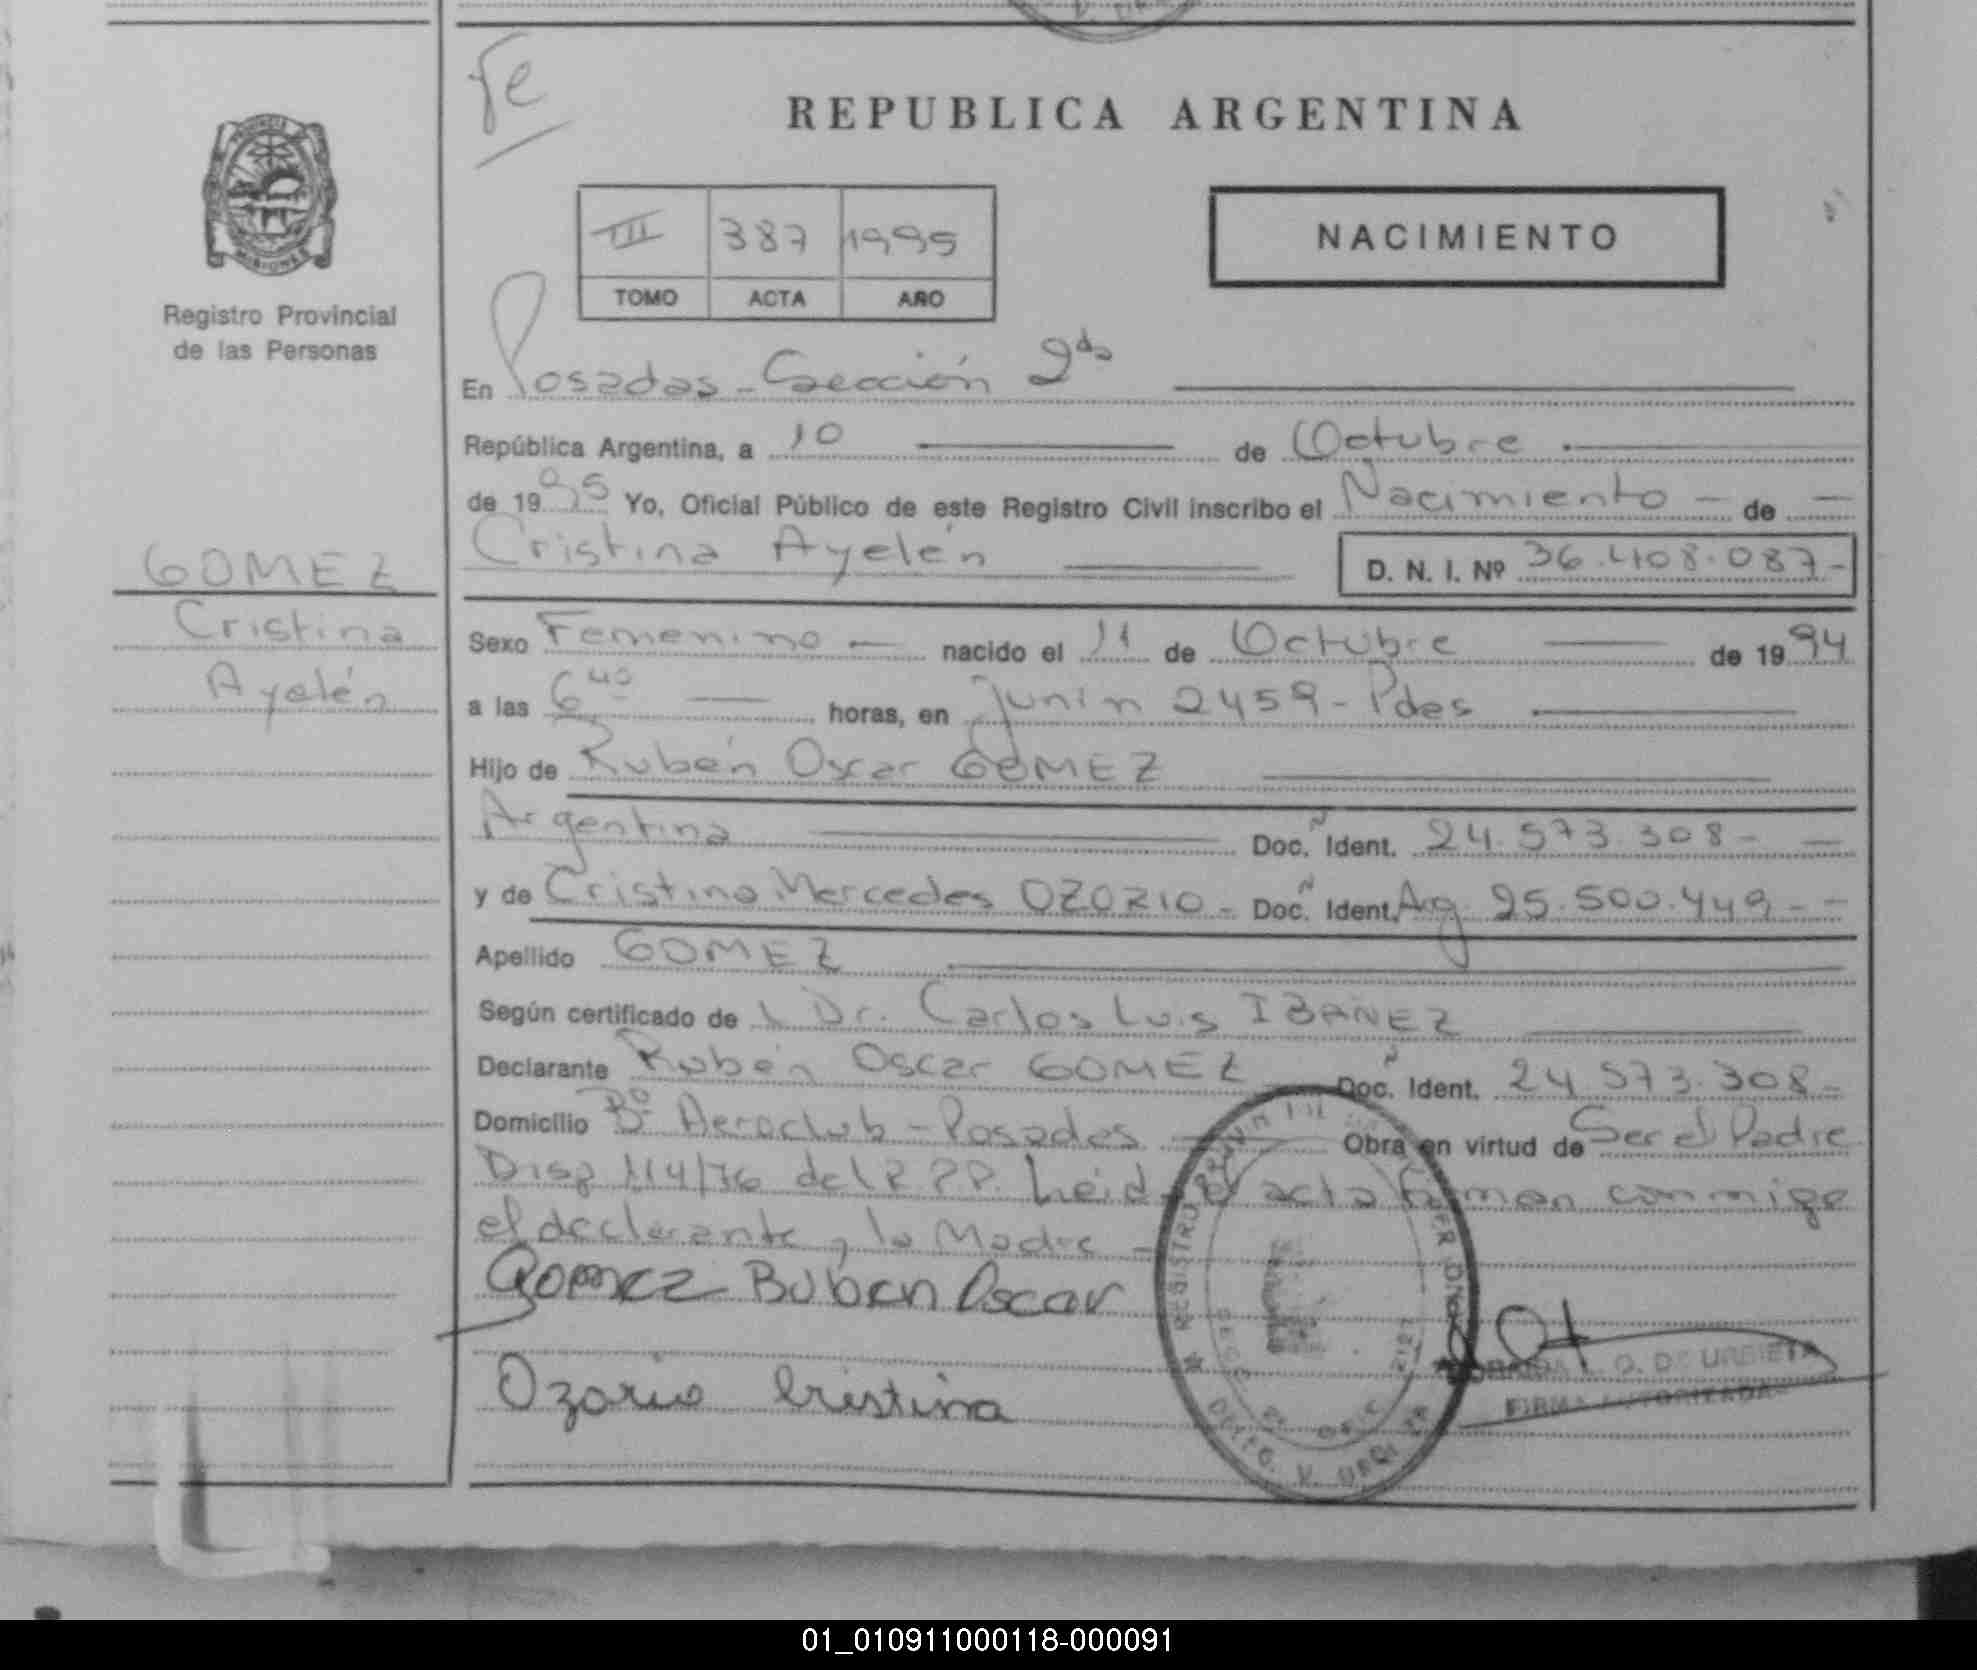 fe
REPUBLICA ARGENTINA
PROVINCIA
MISIONES
III 387 1995
TOMO ACTA AÑO
NACIMIENTO
Registro Provincial
de las Personas
En Posadas - Sección 2da
República Argentina, a 10 de Octubre
de 1995 Yo, Oficial Público de este Registro Civil inscribo el Nacimiento - de -
Cristina Ayelén D. N. I. Nº 36.408.087-
GOMEZ
Cristina
Ayelén
Sexo Femenino - nacido el 11 de Octubre de 1994
a las 6 40 horas, en Junín 2459 - Pdas
Hijo de Rubén Oscar GOMEZ
Argentina Doc. Ident. 24.573.308 -
y de Cristina Mercedes OZORIO - Doc. Ident. Arg 25.500.449 - -
Apellido GOMEZ
Según certificado de L Dr. Carlos Luis IBAÑEZ
Declarante Rubén Oscar GOMEZ Doc. Ident. 24.573.308 -
Domicilio Bº Aeroclub - Posadas Obra en virtud de Ser el Padre
Disp 114/76 del R.P.P. Leida el acta firman conmigo
el declarante y la Madre -
Gomez Ruben Oscar
Ozorio Cristina
O. DE URBIETA
FIRMA AUTORIZADA
REGISTRO
01_010911000118-000091